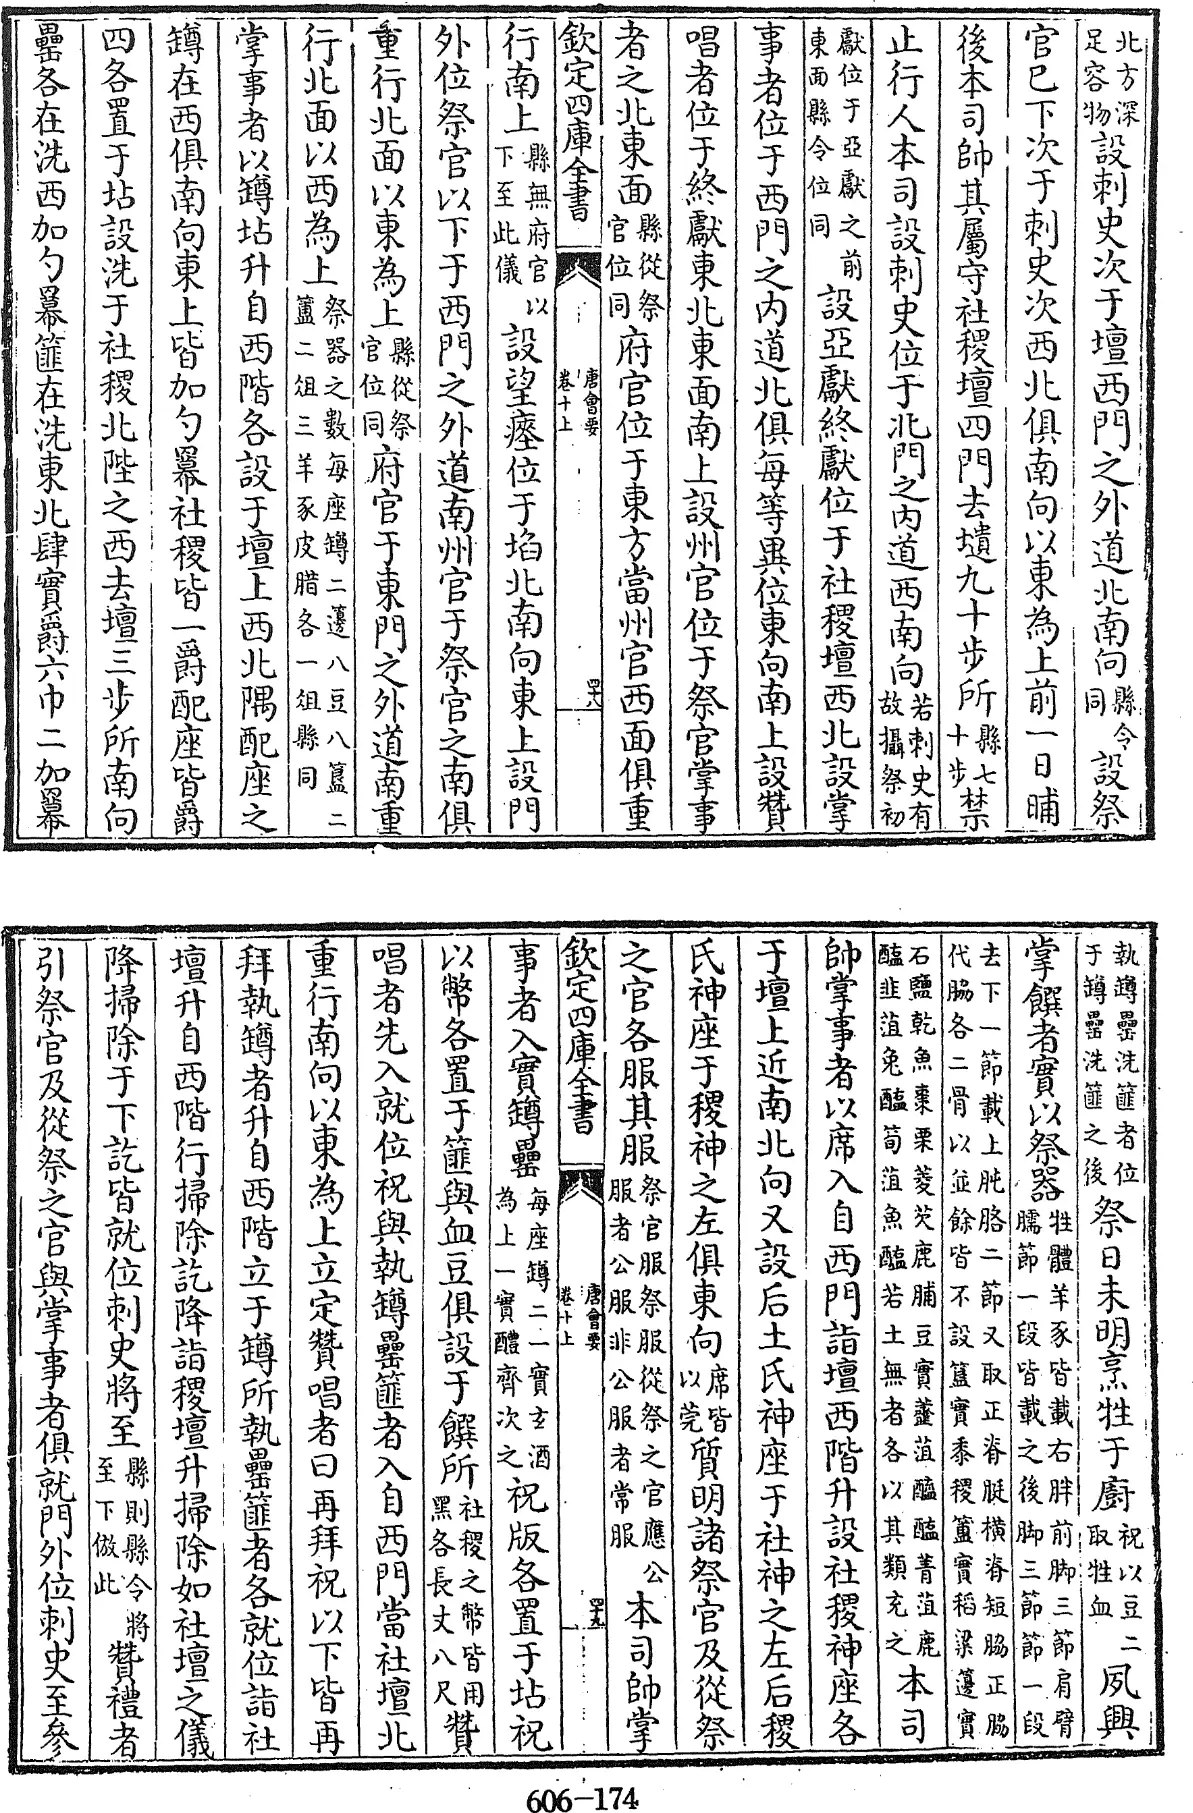 北方深足容物設刺史次于壇西門之外道北南向縣令同設祭
官已下次于刺史次西北俱南向以東為上前一日晡
後本司帥其屬守社稷壇四門去壝九十步所縣七十步禁
止行人本司設刺史位于北門之內道西南向若刺史有故攝祭初
獻位于亞獻之前東面縣令位同設亞獻終獻位于社稷壇西北設掌
事者位于西門之內道北俱每等異位東向南上設贊
唱者位于終獻東北東面南上設州官位于祭官掌事
者之北東面縣從祭官位同府官位于東方當州官西面俱重
欽定四庫全書 唐會要卷十上 四十八
行南上縣無府官以下至此儀設望瘞位于埳北南向東上設門
外位祭官以下于西門之外道南州官于祭官之南俱
重行北面以東為上縣從祭官位同府官于東門之外道南重
行北面以西為上祭器之數每座罇二籩八豆八簋二簠二俎三羊豕皮腊各一俎縣同
掌事者以罇坫升自西階各設于壇上西北隅配座之
罇在西俱南向東上皆加勺羃社稷皆一爵配座皆爵
四各置于坫設洗于社稷北陛之西去壇三步所南向
罍各在洗西加勺羃篚在洗東北肆實爵六巾二加羃
執罇罍洗篚者位于罇罍洗篚之後祭日未明烹牲于廚祝以豆二取牲血夙興
掌饌者實以祭器牲體羊豕皆載右胖前脚三節肩臂臑節一段皆載之後脚三節節一段
去下一節載上肫胳二節又取正脊脡橫脊短脇正脇代脇各二骨以並餘皆不設簋實黍稷簠實稻粱籩實
石鹽乾魚棗栗菱芡鹿脯豆實蘸菹醢醢菁菹鹿醢韭菹兔醢筍菹魚醢若土無者各以其類充之本司
帥掌事者以席入自西門詣壇西階升設社稷神座各
于壇上近南北向又設后土氏神座于社神之左后稷
氏神座于稷神之左俱東向席皆以莞質明諸祭官及從祭
之官各服其服祭官服祭服從祭之官應公服者公服非公服者常服本司帥掌
欽定四庫全書 唐會要卷十上 四十九
事者入實罇罍每座罇二一實玄酒為上一實醴齊次之祝版各置于坫祝
以幣各置于篚與血豆俱設于饌所社稷之幣皆用黑各長丈八尺贊
唱者先入就位祝與執罇罍篚者入自西門當社壇北
重行南向以東為上立定贊唱者曰再拜祝以下皆再
拜執罇者升自西階立于罇所執罍篚者各就位詣社
壇升自西階行掃除訖降詣稷壇升掃除如社壇之儀
降掃除于下訖皆就位刺史將至縣則縣令將至下倣此贊禮者
引祭官及從祭之官與掌事者俱就門外位刺史至參
606-174